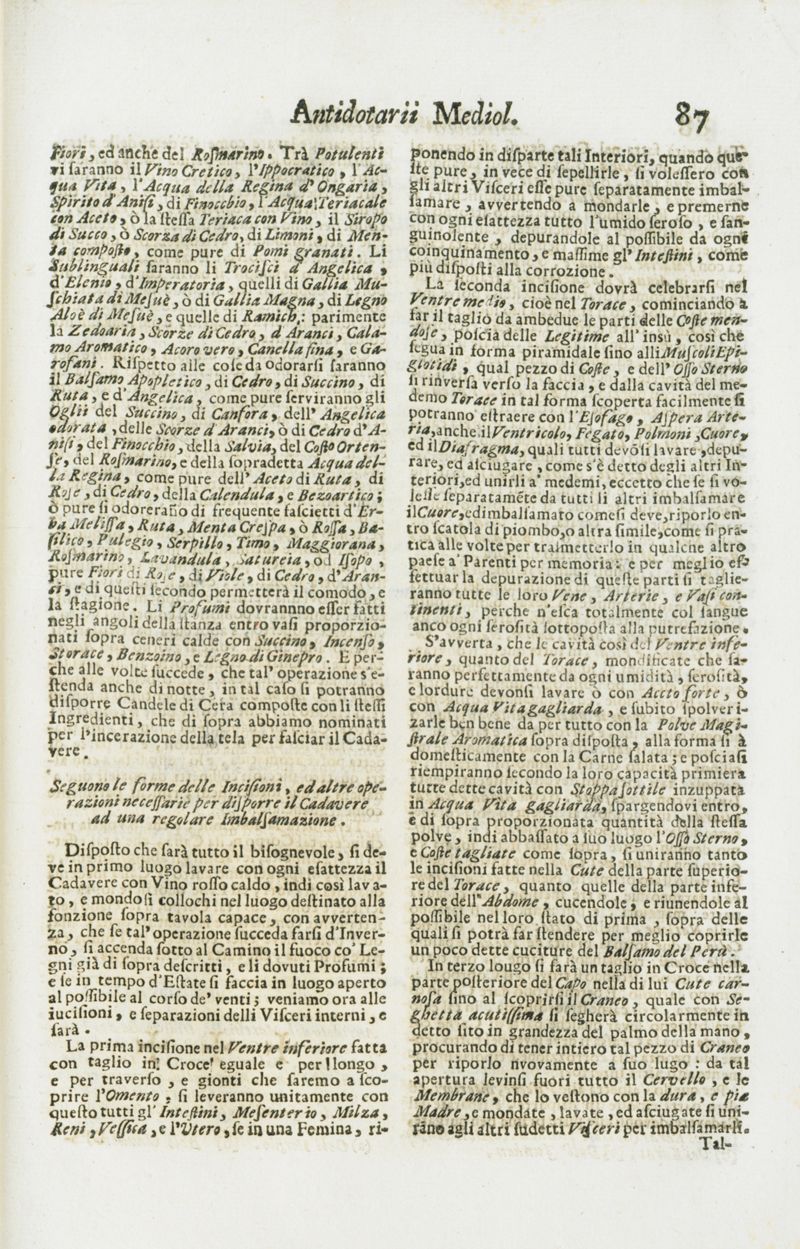 Antidotarii Mediol. 87
Fiori, ed anche del Roſmarino. Trà Potulenti
vi ſaranno il Vino Cretico, l'Ippocratico, l'Ac-
qua Vita, l'Acqua della Regina d'Ongaria,
Spirito d'Aniſi, di Finocchio, l'Acqua Teriacale
con Aceto, ò la ſteſſa Teriaca con Vino, il Siropo
di Succo, ò Scorza di Cedro, di Limoni, di Men-
ta compoſto, come pure di Pomi granati. Li
Sublinguali ſaranno li Trociſci d'Angelica,
d'Elenio, d'Imperatoria, quelli di Gallia Mu-
ſchiata di Meſuè, ò di Gallia Magna, di Legno
Aloè di Meſuè, e quelle di Ramich,: parimente
la Zedoaria, Scorze di Cedro, d'Aranci, Cala-
mo Aromatico, Acoro vero, Canella fina, e Ga-
rofani. Riſpetto alle coſe da odorarſi ſaranno
il Balſamo Apopletico, di Cedro, di Succino, di
Ruta, e d'Angelica, come pure ſerviranno gli
Oglii del Succino, di Canfora, dell'Angelica
odorata, delle Scorze d'Aranci, ò di Cedro d'A-
niſi, del Finocchio, della Salvia, del Coſto Orten-
ſe, del Roſmarino, e della ſopradetta Acqua del-
la Regina, come pure dell'Aceto di Ruta, di
Roſe, di Cedro, della Calendula, e Bezoartico;
ò pure ſi odoreraño di frequente faſcietti d'Er-
ba Meliſſa, Ruta, Menta Creſpa, ò Roſſa, Ba-
ſilico, Pulegio, Serpillo, Timo, Maggiorana,
Roſmarino, Lavandula, Satureia, od Iſopo,
pure Fiori di Roſe, di Viole, di Cedro, d'Aran-
ci, e di queſti ſecondo permetterà il comodo, e
la ſtagione. Li Profumi dovrannno eſſer fatti
negli angoli della ſtanza entro vaſi proporzio-
nati ſopra ceneri calde con Succino, Incenſo,
Storace, Benzoino, e Legno di Ginepro. E per-
che alle volte ſuccede, che tal' operazione s'e-
ſtenda anche di notte, in tal caſo ſi potranno
diſporre Candele di Cera compoſte con li ſteſſi
Ingredienti, che di ſopra abbiamo nominati
per l'incerazione della tela per faſciar il Cada-
vere.
Seguono le forme delle Inciſioni, ed altre ope-
razioni neceſſarie per diſporre il Cadavere
ad una regolare Imbalſamazione.
Diſpoſto che ſarà tutto il biſognevole, ſi de-
ve in primo luogo lavare con ogni eſattezza il
Cadavere con Vino roſſo caldo, indi così lava-
to, e mondo ſi collochi nel luogo deſtinato alla
fonzione ſopra tavola capace, con avverten-
za, che ſe tal'operazione ſucceda farſi d'Inver-
no, ſi accenda ſotto al Camino il fuoco co' Le-
gni già di ſopra deſcritti, e li dovuti Profumi;
e ſe in tempo d'Eſtate ſi faccia in luogo aperto
al poſſibile al corſo de' venti; veniamo ora alle
iuciſioni, e ſeparazioni delli Viſceri interni, e
ſarà.
La prima inciſione nel Ventre inferiore fatta
con taglio in Croce eguale e per llongo,
e per traverſo, e gionti che ſaremo a ſco-
prire l'Omento, ſi leveranno unitamente con
queſto tutti gl'Inteſtini, Meſenterio, Milza,
Reni, Veſſica, e l'Utero, ſe in una Femina, ri-
ponendo in diſparte tali Interiori, quando que-
ſte pure, in vece di ſepellirle, ſi voleſſero con
gli altri Viſceri eſſe pure ſeparatamente imbal-
ſamare, avvertendo a mondarle, e premerne
con ogni eſattezza tutto l'umido ſeroſo, e ſan-
guinolente, depurandole al poſſibile da ogni
coinquinamento, e maſſime gl'Inteſtini, come
più diſpoſti alla corrozione.
La ſeconda inciſione dovrà celebrarſi nel
Ventre medio, cioè nel Torace, cominciando à
far il taglio da ambedue le parti delle Coſte men-
doſe, poſcia delle Legitime all'insù, così che
ſegua in forma piramidale ſino alli Muſcoli Epi-
glotidi, qual pezzo di Coſte, e dell'Oſſo Sterno
ſi rinverſa verſo la faccia, e dalla cavità del me-
demo Torace in tal forma ſcoperta facilmente ſi
potranno eſtraere con l'Eſofago, Aſpera Arte-
ria, anche il Ventricolo, Fegato, Polmoni, Cuore,
ed il Diafragma, quali tutti devōſi lavare, depu-
rare, ed aſciugare, come s'è detto degli altri In-
teriori, ed unirli a' medemi, eccetto che ſe ſi vo-
leſſe ſeparatamēte da tutti li altri imbalſamare
il Cuore, ed imbalſamato come ſi deve, riporlo en-
tro ſcatola di piombo, o altra ſimile, come ſi pra-
tica alle volte per traſmetterlo in qualche altro
paeſe a' Parenti per memoria: e per meglio ef-
fettuar la depurazione di queſte parti ſi taglie-
ranno tutte le loro Vene, Arterie, e Vaſi con-
tinenti, perche n'eſca totalmente col ſangue
anco ogni ſeroſità ſottopoſta alla putrefazione.
S'avverta, che le cavità così del Ventre infe-
riore, quanto del Torace, mondificate che ſa-
ranno perfettamente da ogni umidità, ſeroſità,
e lordure devonſi lavare ò con Aceto forte, ò
con Acqua Vita gagliarda, e ſubito ſpolveri-
zarle ben bene da per tutto con la Polve Magi-
ſtrale Aromatica ſopra diſpoſta, alla forma ſi à
domeſticamente con la Carne ſalata; e poſcia ſi
riempiranno ſecondo la loro capacità primiera
tutte dette cavità con Stoppa ſottile inzuppata
in Acqua Vita gagliarda, ſpargendovi entro,
e di ſopra proporzionata quantità della ſteſſa
polve, indi abbaſſato a ſuo luogo l'Oſſo Sterno,
e Coſte tagliate come ſopra, ſi uniranno tanto
le inciſioni fatte nella Cute della parte ſuperio-
re del Torace, quanto quelle della parte infe-
riore dell'Abdome, cucendole, e riunendole al
poſſibile nel loro ſtato di prima, ſopra delle
quali ſi potrà far ſtendere per meglio coprirle
un poco dette cuciture del Balſamo del Perù.
In terzo lougo ſi farà un taglio in Croce nella
parte poſteriore del Capo nella di lui Cute car-
noſa ſino al ſcoprirſi il Craneo, quale con Se-
ghetta acutiſſima ſi ſegherà circolarmente in
detto ſito in grandezza del palmo della mano,
procurando di tener intiero tal pezzo di Craneo
per riporlo nvovamente a ſuo lugo: da tal
apertura levinſi fuori tutto il Cervello, e le
Membrane, che lo veſtono con la dura, e pia
Madre, e mondate, lavate, ed aſciugate ſi uni-
rāno agli altri ſudetti Viſceri per imbalſamarli.
Tal-